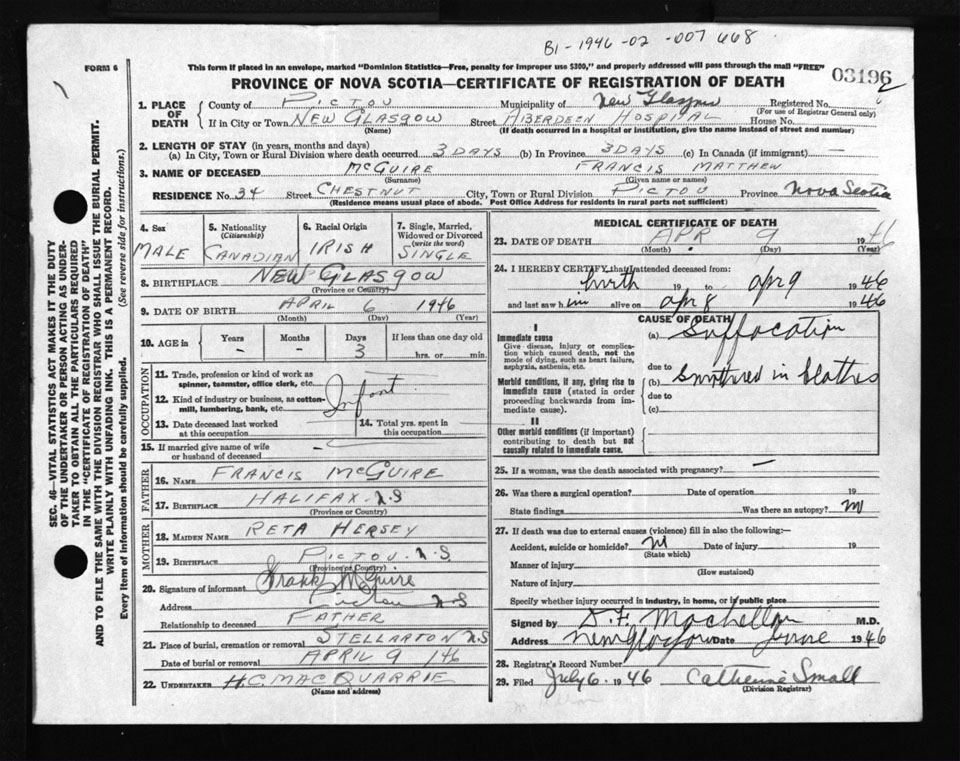 B1-1946-02-007668
FORM 6
This form if placed in an envelope, marked "Dominion Statistics—Free, penalty for improper use $300," and properly addressed will pass through the mail "FREE"
PROVINCE OF NOVA SCOTIA—CERTIFICATE OF REGISTRATION OF DEATH
03196
1. PLACE OF DEATH
County of PICTOU Municipality of New Glasgow Registered No.
(For use of Registrar General only)
If in City or Town NEW GLASGOW Street ABERDEEN HOSPITAL House No.
(Name) (If death occurred in a hospital or institution, give the name instead of street and number)
2. LENGTH OF STAY (in years, months and days)
(a) In City, Town or Rural Division where death occurred 3 DAYS (b) In Province 3 DAYS (c) In Canada (if immigrant) —
3. NAME OF DECEASED McGUIRE FRANCIS MATTHEW
(Surname) (Given name or names)
RESIDENCE No. 34 Street CHESTNUT City, Town or Rural Division PICTOU Province Nova Scotia
(Residence means usual place of abode. Post Office Address for residents in rural parts not sufficient)
SEC. 46—VITAL STATISTICS ACT MAKES IT THE DUTY
OF THE UNDERTAKER OR PERSON ACTING AS UNDER-
TAKER TO OBTAIN ALL THE PARTICULARS REQUIRED
IN THE "CERTIFICATE OF REGISTRATION OF DEATH"
AND TO FILE THE SAME WITH THE DIVISION REGISTRAR WHO SHALL ISSUE THE BURIAL PERMIT.
WRITE PLAINLY WITH UNFADING INK. THIS IS A PERMANENT RECORD.
Every item of information should be carefully supplied. (See reverse side for instructions.)
4. Sex
MALE
5. Nationality
(Citizenship)
CANADIAN
6. Racial Origin
IRISH
7. Single, Married,
Widowed or Divorced
(write the word)
SINGLE
8. BIRTHPLACE NEW GLASGOW
(Province or Country)
9. DATE OF BIRTH APRIL 6 1946
(Month) (Day) (Year)
10. AGE in
Years Months Days If less than one day old
- - 3 hrs. or min.
OCCUPATION
11. Trade, profession or kind of work as
spinner, teamster, office clerk, etc.
12. Kind of industry or business, as cotton-
mill, lumbering, bank, etc.
Infant
13. Date deceased last worked
at this occupation
14. Total yrs. spent in
this occupation
15. If married give name of wife
or husband of deceased –
FATHER
16. NAME FRANCIS McGUIRE
17. BIRTHPLACE HALIFAX - N.S
(Province or Country)
MOTHER
18. MAIDEN NAME RETA HERSEY
19. BIRTHPLACE PICTOU - N.S.
(Province or Country)
20. Signature of informant Frank McGuire
Address Pictou N S
Relationship to deceased FATHER
21. Place of burial, cremation or removal STELLARTON N.S
Date of burial or removal APRIL 9 / 46
22. UNDERTAKER H.C. MACQUARRIE
(Name and address)
MEDICAL CERTIFICATE OF DEATH
23. DATE OF DEATH APR 9 1946
(Month) (Day) (Year)
24. I HEREBY CERTIFY that I attended deceased from:
birth 19 to apr 9 1946
and last saw him alive on apr 8 1946
CAUSE OF DEATH
I
Immediate cause
Give disease, injury or complica-
tion which caused death, not the
mode of dying, such as heart failure,
asphyxia, asthenia, etc.
Morbid conditions, if any, giving rise to
immediate cause (stated in order
proceeding backwards from im-
mediate cause).
II
Other morbid conditions (if important)
contributing to death but not
causally related to immediate cause.
(a) Suffocation
due to
(b) Smothered in clothes
due to
(c)
25. If a woman, was the death associated with pregnancy? —
26. Was there a surgical operation? Date of operation 19
State findings Was there an autopsy?
27. If death was due to external causes (violence) fill in also the following:—
Accident, suicide or homicide? Date of injury 19
(State which)
Manner of injury
(How sustained)
Nature of injury
Specify whether injury occurred in industry, in home, or in public place
Signed by M.D.
Address New Glasgow Date June 1946
28. Registrar's Record Number
29. Filed July 6 1946 Catherine Small
(Division Registrar)